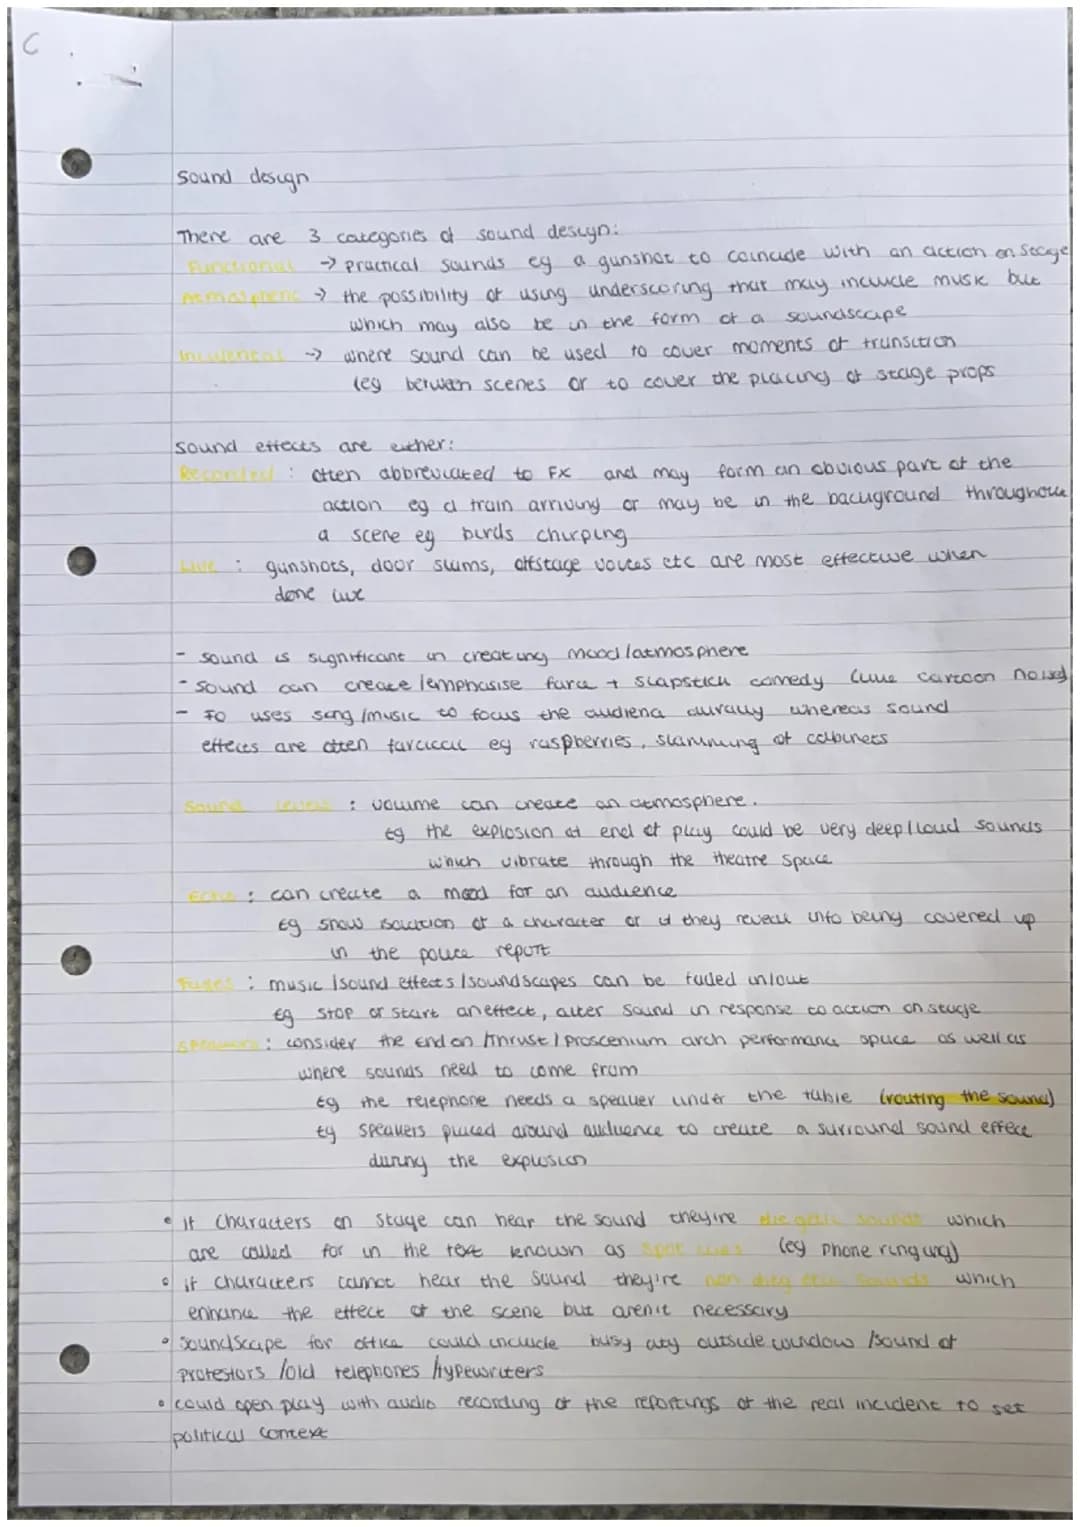 C
Sound design
There are 3 categories of sound design:
Functional → practical sounds eg a gunshot to coincide with an action on stage
Atmospheric → the possibility of using underscoring that may include music but
which may also be in the form of a soundscape
Incidental → where sound can be used to cover moments of transition
(eg between scenes or to cover the placing of stage props
Sound effects are either:
Recorded : often abbreviated to FX and may form an obvious part of the
action eg a train arriving or may be in the background throughout
a scene eg birds chirping
Live : gunshots, door slams, offstage voices etc are most effective when
done live
- sound is significant in creating mood/atmosphere
- sound can create/emphasise farce + slapstick comedy (like cartoon noises)
- Fo uses song/music to focus the audience aurally whereas sound
effects are often farcical eg raspberries, slamming of cabinets
Sound levels : volume can create an atmosphere.
Eg the explosion at end of play could be very deep/loud sounds
which vibrate through the theatre space
Echo : can create a mood for an audience
Eg show isolation of a character or if they reveal info being covered up
in the police report
Fades : music/sound effects/soundscapes can be faded in/out
Eg stop or start an effect, alter sound in response to action on stage
Speakers : consider the end on/thrust/proscenium arch performance space as well as
where sounds need to come from
Eg the telephone needs a speaker under the table (routing the sound)
Eg speakers placed around audience to create a surround sound effect
during the explosion
• if characters on stage can hear the sound they're diegetic sounds which
are called for in the text known as spot cues (eg phone ringing)
• if characters cannot hear the sound they're non diegetic sounds which
enhance the effect of the scene but aren't necessary
• Soundscape for office could include busy city outside window/sound of
protestors/old telephones/typewriters
• could open play with audio recording of the reportings of the real incident to set
political context